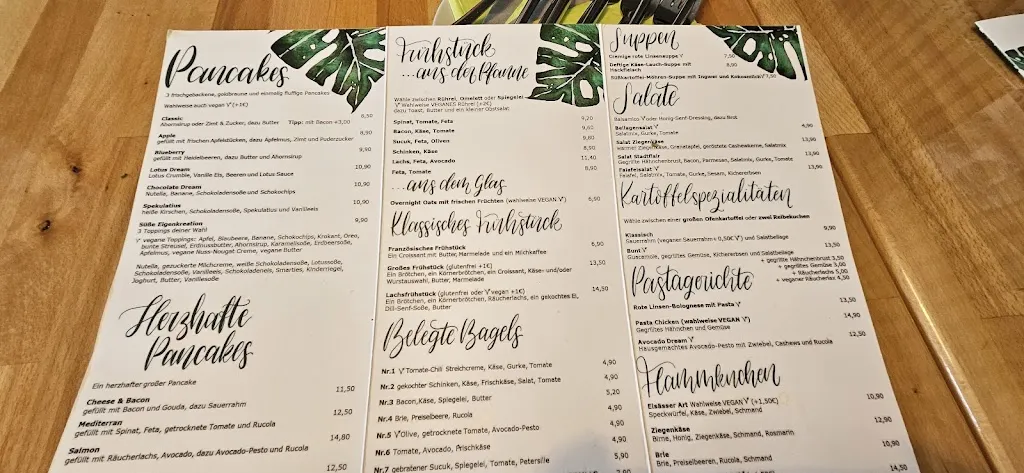 Pancakes
3 frischgebackene, goldbraune und einmalig fluffige Pancakes
Wahlweise auch vegan V (+1€)
Classic
Ahornsirup oder Zimt & Zucker, dazu Butter Tipp: mit Bacon +3,00 6,50
Apple
gefüllt mit frischen Apfelstücken, dazu Apfelmus, Zimt und Puderzucker 8,90
Blueberry
gefüllt mit Heidelbeeren, dazu Butter und Ahornsirup 9,90
Lotus Dream
Lotus Crumble, Vanille Eis, Beeren und Lotus Sauce 10,90
Chocolate Dream
Nutella, Banane, Schokoladensoße und Schokochips 10,90
Spekulatius
heiße Kirschen, Schokoladensoße, Spekulatius und Vanilleeis 10,90
Süße Eigenkreation
3 Toppings deiner Wahl 9,90
V vegane Toppings: Apfel, Blaubeere, Banane, Schokochips, Krokant, Oreo,
bunte Streusel, Erdnussbutter, Ahornsirup, Karamellsoße, Erdbeersoße,
Apfelmus, vegane Nuss-Nougat-Creme, vegane Butter
Nutella, gezuckerte Milchcreme, weiße Schokoladensoße, Lotussoße,
Schokoladensoße, Vanilleeis, Schokoladeneis, Smarties, Kinderriegel,
Joghurt, Butter, Vanillesoße
Herzhafte
Pancakes
Ein herzhafter großer Pancake
Cheese & Bacon 11,50
gefüllt mit Bacon und Gouda, dazu Sauerrahm
Mediterran 12,50
gefüllt mit Spinat, Feta, getrocknete Tomate und Rucola
Salmon 14,80
gefüllt mit Räucherlachs, Avocado, dazu Avocado-Pesto und Rucola
12,50
Frühstück
...aus der Pfanne
Wähle zwischen Rührei, Omelett oder Spiegelei
V Wahlweise VEGANES Rührei (+2€)
dazu Toast, Butter und ein kleiner Obstsalat
Spinat, Tomate, Feta 9,20
Bacon, Käse, Tomate 9,60
Sucuk, Feta, Oliven 9,60
Schinken, Käse 8,90
Lachs, Feta, Avocado 11,40
Feta, Tomate 8,90
...aus dem Glas
Overnight Oats mit frischen Früchten (wahlweise VEGAN V) 6,90
Klassisches Frühstück
Französisches Frühstück 6,90
Ein Croissant mit Butter, Marmelade und ein Milchkaffee
Großes Frühstück (glutenfrei +1€) 13,50
Ein Brötchen, ein Körnerbrötchen, ein Croissant, Käse- und/oder
Wurstauswahl, Butter, Marmelade
Lachsfrühstück (glutenfrei oder V vegan +1€) 14,50
Ein Brötchen, ein Körnerbrötchen, Räucherlachs, ein gekochtes Ei,
Dill-Senf-Soße, Butter
Belegte Bagels
Nr.1 V Tomate-Chili Streichcreme, Käse, Gurke, Tomate 4,90
Nr.2 gekochter Schinken, Käse, Frischkäse, Salat, Tomate 4,90
Nr.3 Bacon,Käse, Spiegelei, Butter 5,20
Nr.4 Brie, Preiselbeere, Rucola 4,90
Nr.5 V Olive, getrocknete Tomate, Avocado-Pesto 4,90
Nr.6 Tomate, Avocado, Frischkäse 4,90
Nr.7 gebratener Sucuk, Spiegelei, Tomate, Petersilie 5,90
Suppen
Cremige rote Linsensuppe V 7,50
Deftige Käse-Lauch-Suppe mit
Hackfleisch 8,90
Süßkartoffel-Möhren-Suppe mit Ingwer und Kokosmilch V 7,50
Salate
Balsamico V oder Honig-Senf-Dressing, dazu Brot
Beilagensalat V 4,90
Salatmix, Gurke, Tomate
Salat Ziegenkäse 13,90
warmer Ziegenkäse, Granatapfel, geröstete Cashewkerne, Salatmix
Salat Stadtflair 13,90
Gegrillte Hähnchenbrust, Bacon, Parmesan, Salatmix, Gurke, Tomate
Falafelsalat V 13,90
Falafel, Salatmix, Tomate, Gurke, Sesam, Kichererbsen
Kartoffelspezialitäten
Wähle zwischen einer großen Ofenkartoffel oder zwei Reibekuchen
Klassisch 9,90
Sauerrahm (veganen Sauerrahm+ 0,50€ V) und Salatbeilage
Bunt V 13,50
Guacamole, gegrilltes Gemüse, Kichererbsen und Salatbeilage
+ gegrillte Hähnchenbrust 3,50
+ gegrilltes Gemüse 3,00
+ Räucherlachs 5,00
+ veganer Räucherlax 4,50
Pastagerichte
Rote Linsen-Bolognese mit Pasta V 13,50
Pasta Chicken (wahlweise VEGAN V) 14,90
Gegrilltes Hähnchen und Gemüse
Avocado Dream V 12,50
Hausgemachtes Avocado-Pesto mit Zwiebel, Cashews und Rucola
Flammkuchen
Elsässer Art Wahlweise VEGAN V (+1,50€) 10,90
Speckwürfel, Käse, Zwiebel, Schmand
Ziegenkäse 12,90
Birne, Honig, Ziegenkäse, Schmand, Rosmarin
Brie 10,90
Brie, Preiselbeeren, Rucola, Schmand
14,50